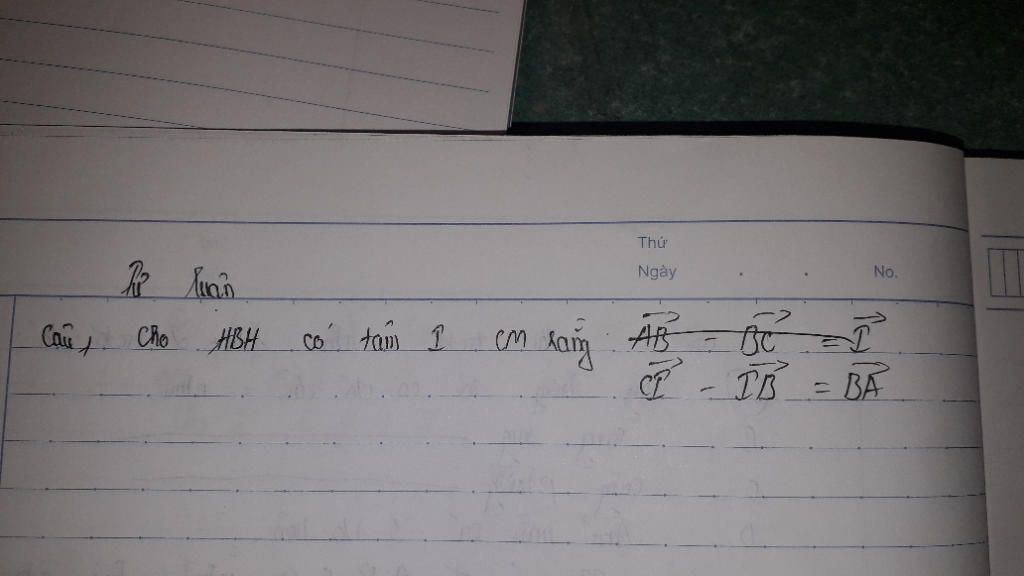 Thứ
Ngày . . No.
Tự luận
Câu, Cho HBH có tâm I CM rằng AB - BC = I
CI - IB = BA